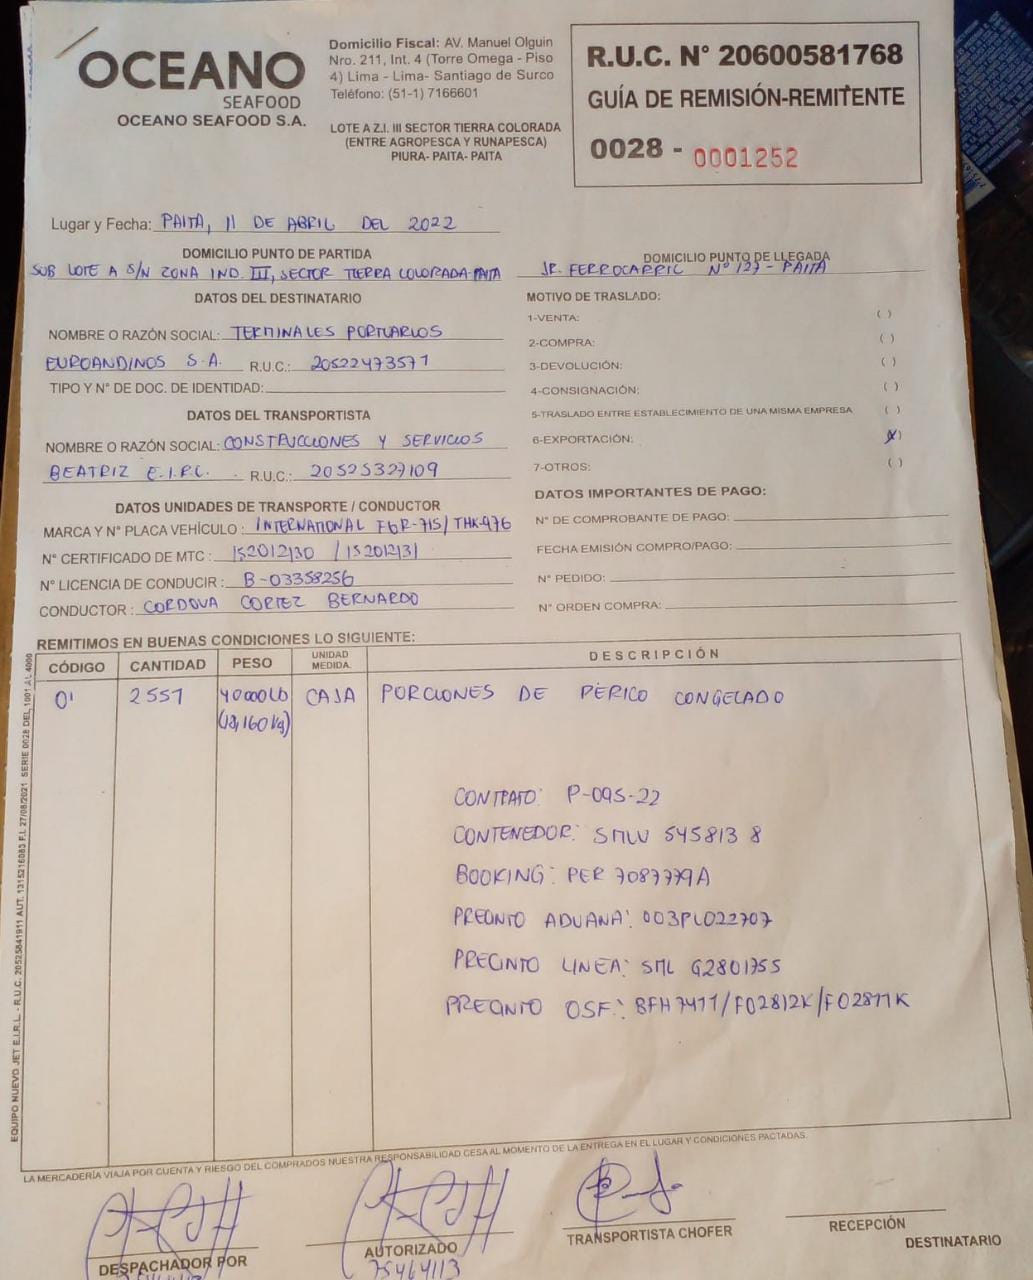 OCEANO
SEAFOOD
OCEANO SEAFOOD S.A.
Domicilio Fiscal: AV. Manuel Olguin
Nro. 211, Int. 4 (Torre Omega - Piso
4) Lima - Lima- Santiago de Surco
Teléfono: (51-1) 7166601
LOTE A Z.I. III SECTOR TIERRA COLORADA
(ENTRE AGROPESCA Y RUNAPESCA)
PIURA- PAITA- PAITA
R.U.C. N° 20600581768
GUÍA DE REMISIÓN-REMITENTE
0028 - 0001252
Lugar y Fecha: PAITA, 11 DE ABRIL DEL 2022
DOMICILIO PUNTO DE PARTIDA
SUB LOTE A S/N ZONA IND. III, SECTOR TIERRA COLORADA-PAITA
DOMICILIO PUNTO DE LLEGADA
JR. FERROCARRIL N° 127 - PAITA
DATOS DEL DESTINATARIO
NOMBRE O RAZÓN SOCIAL: TERMINALES PORTUARIOS
EUROANDINOS S.A. R.U.C.: 20522473571
TIPO Y N° DE DOC. DE IDENTIDAD:
DATOS DEL TRANSPORTISTA
NOMBRE O RAZÓN SOCIAL: CONSTRUCCIONES Y SERVICIOS
BEATRIZ E.I.R.L. R.U.C.: 20525327109
DATOS UNIDADES DE TRANSPORTE / CONDUCTOR
MARCA Y N° PLACA VEHÍCULO: INTERNATIONAL F6R-715/
N° CERTIFICADO DE MTC: 152012130 / 152012131
N° LICENCIA DE CONDUCIR: B-03358256
CONDUCTOR: CORDOVA CORTEZ BERNARDO
MOTIVO DE TRASLADO:
1-VENTA: ( )
2-COMPRA: ( )
3-DEVOLUCIÓN: ( )
4-CONSIGNACIÓN: ( )
5-TRASLADO ENTRE ESTABLECIMIENTO DE UNA MISMA EMPRESA ( )
6-EXPORTACIÓN: (X)
7-OTROS: ( )
DATOS IMPORTANTES DE PAGO:
N° DE COMPROBANTE DE PAGO:
FECHA EMISIÓN COMPRO/PAGO:
N° PEDIDO:
N° ORDEN COMPRA:
REMITIMOS EN BUENAS CONDICIONES LO SIGUIENTE:
CÓDIGO CANTIDAD PESO UNIDAD MEDIDA. DESCRIPCIÓN
01 2551 40000Lb CAJA PORCIONES DE PERICO CONGELADO
(18,160 Kg)
CONTRATO: P-095-22
CONTENEDOR: SMLU 545813 8
BOOKING: PER 7087779A
PRECINTO ADUANA: 003PL022707
PRECINTO LINEA: SML G2801755
PRECINTO OSF: BFH7411/F02812K/F02811K
EQUIPO NUEVO JET E.I.R.L. - R.U.C. 20525841911 AUT. 1315216083 F.I. 27/08/2021 SERIE 0028 DEL 1001 AL 4000
LA MERCADERÍA VIAJA POR CUENTA Y RIESGO DEL COMPRADOS NUESTRA RESPONSABILIDAD CESA AL MOMENTO DE LA ENTREGA EN EL LUGAR Y CONDICIONES PACTADAS.
DESPACHADOR POR
AUTORIZADO
75464113
TRANSPORTISTA CHOFER
RECEPCIÓN
DESTINATARIO